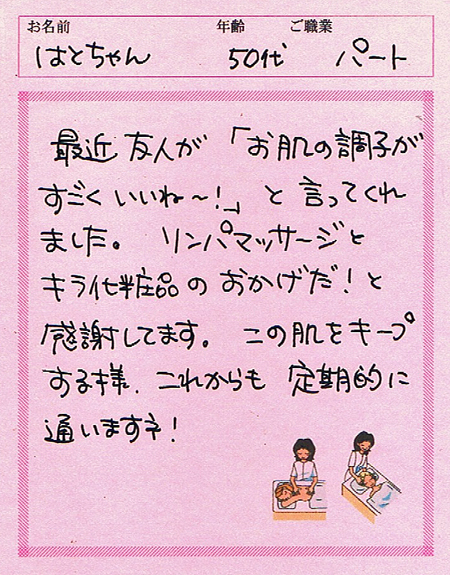 お名前 年齢 ご職業
はとちゃん 50代 パート
最近 友人が 「お肌の調子が
すごく いいね〜!」 と 言ってくれ
ました。 リンパマッサージと
キラ化粧品の おかげだ!と
感謝してます。 この肌をキープ
する様、これからも 定期的に
通いますネ!